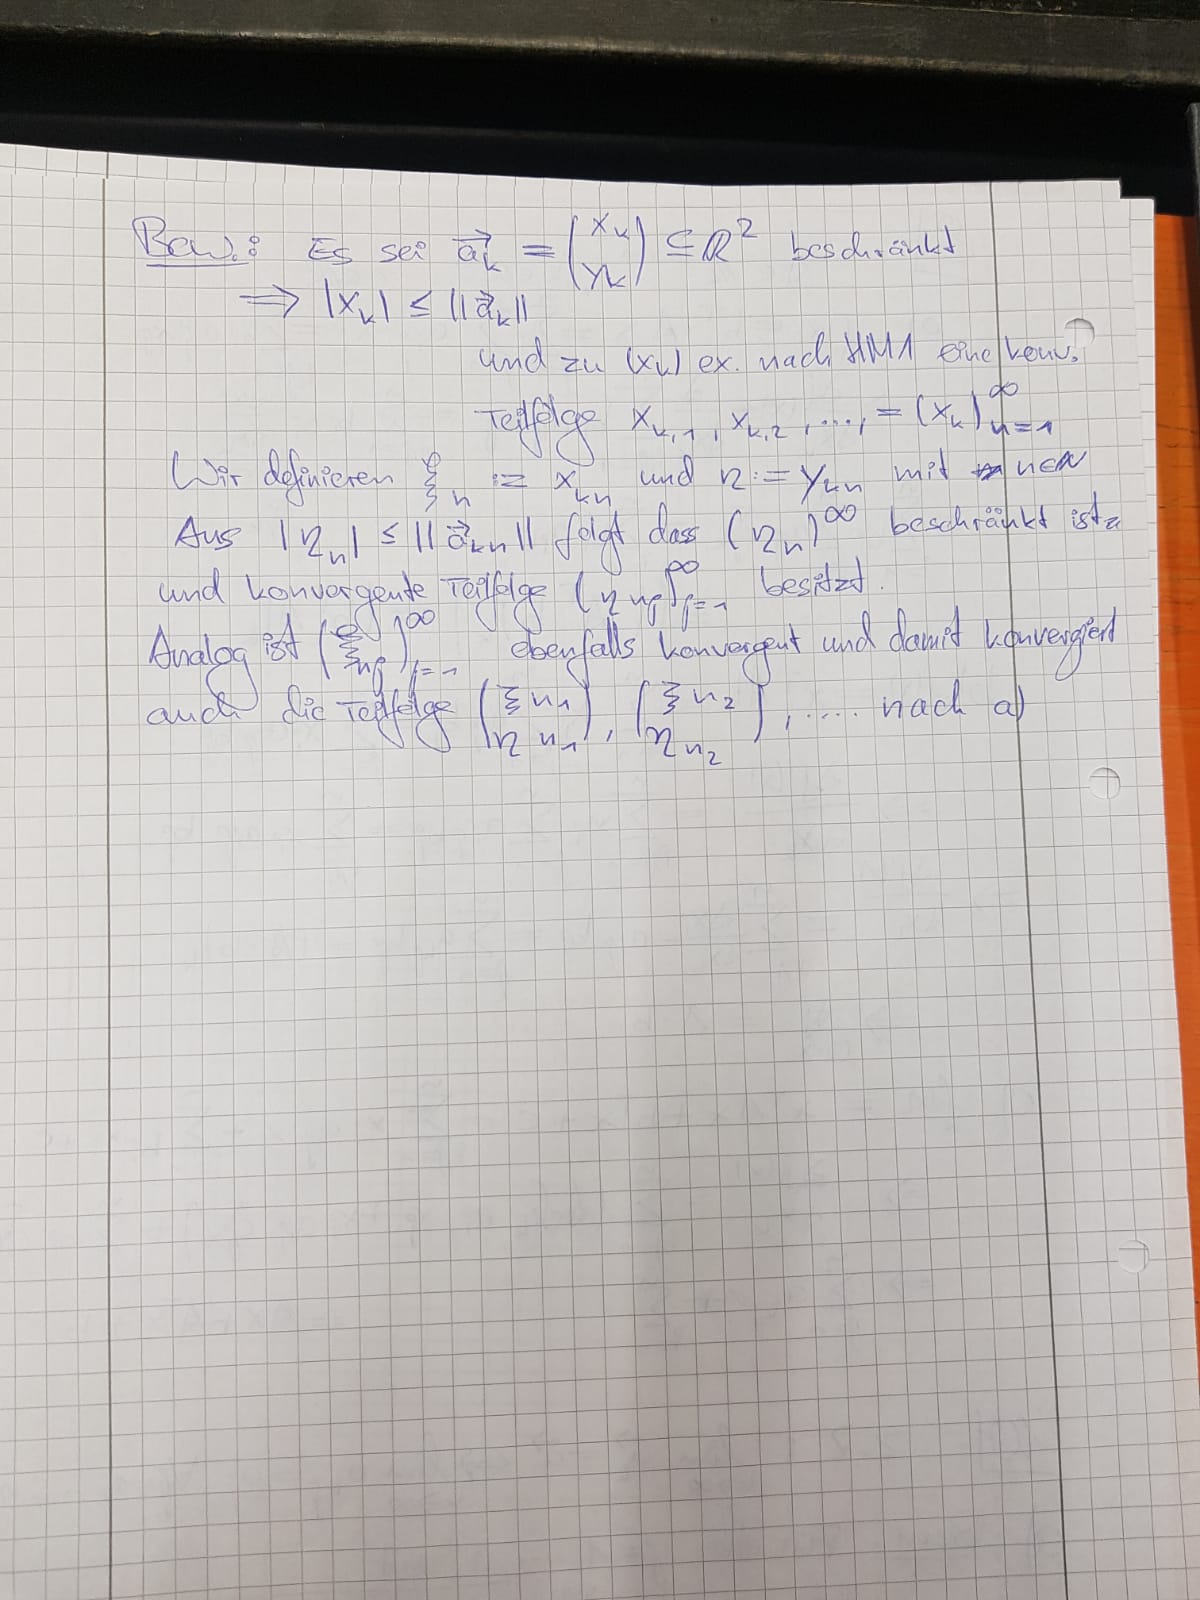 Bew.: Es sei a⃗ₖ = (xₖ yₖ) ⊆ ℝ² beschränkt
⟹ |xₖ| ≤ ||a⃗ₖ||
und zu (xₖ) ex. nach HM1 eine konv.
Teilfolge x_{k,1}, x_{k,2}, ..., = (xₖ)_{n=1}^∞
Wir definieren ξₙ := x_{kn} und η := y_{kn} mit n∈ℕ
Aus |ηₙ| ≤ ||a⃗_{kn}|| folgt dass (ηₙ)^∞ beschränkt ist
und konvergente Teilfolge (η_{nl})_{l=1}^∞ besitzt.
Analog ist (ξ_{nl})_{l=1}^∞ ebenfalls konvergent und damit konvergiert
auch die Teilfolge (ξ_{n₁} η_{n₁}), (ξ_{n₂} η_{n₂}), .... nach a)